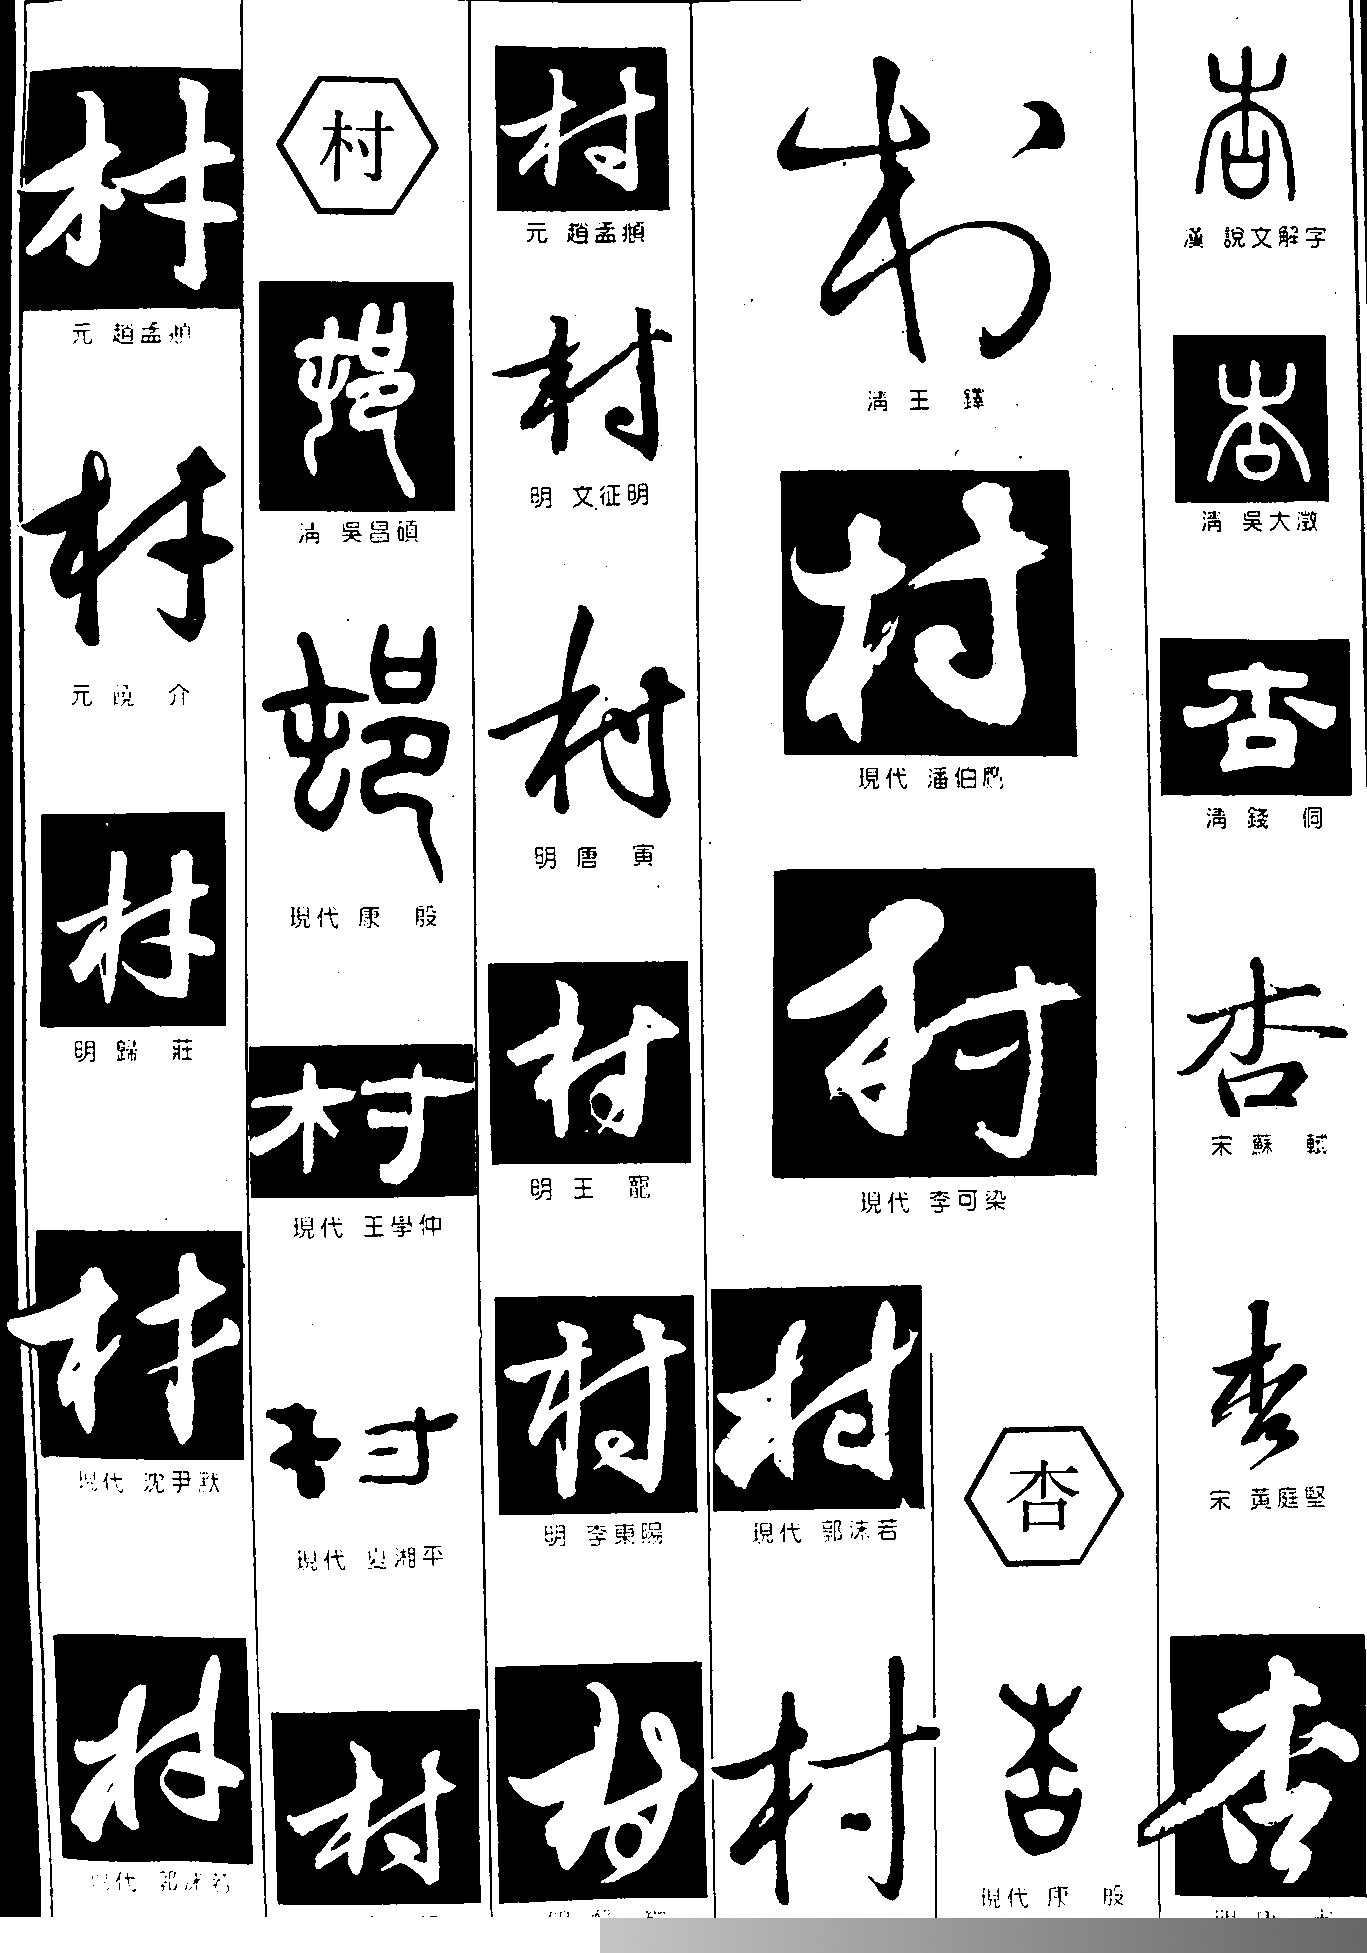 材
元 趙孟頫
材
元 饒 介
材
明 歸 莊
材
現代 沈尹默
材
現代 郭沫若
村
邨
清 吳昌碩
邨
現代 康 殷
村
現代 王學仲
村
村
村
元 趙孟頫
村
明 文征明
村
明 唐 寅
村
明 王 寵
村
明 李東陽
村
村
清 王 鐸
村
現代 潘伯鷹
村
現代 李可染
村
現代 郭沫若
村
杏
杏
現代 康 殷
杏
漢 說文解字
杏
清 吳大澂
杏
清 錢
杏
宋 蘇 軾
杏
宋 黃庭堅
杏